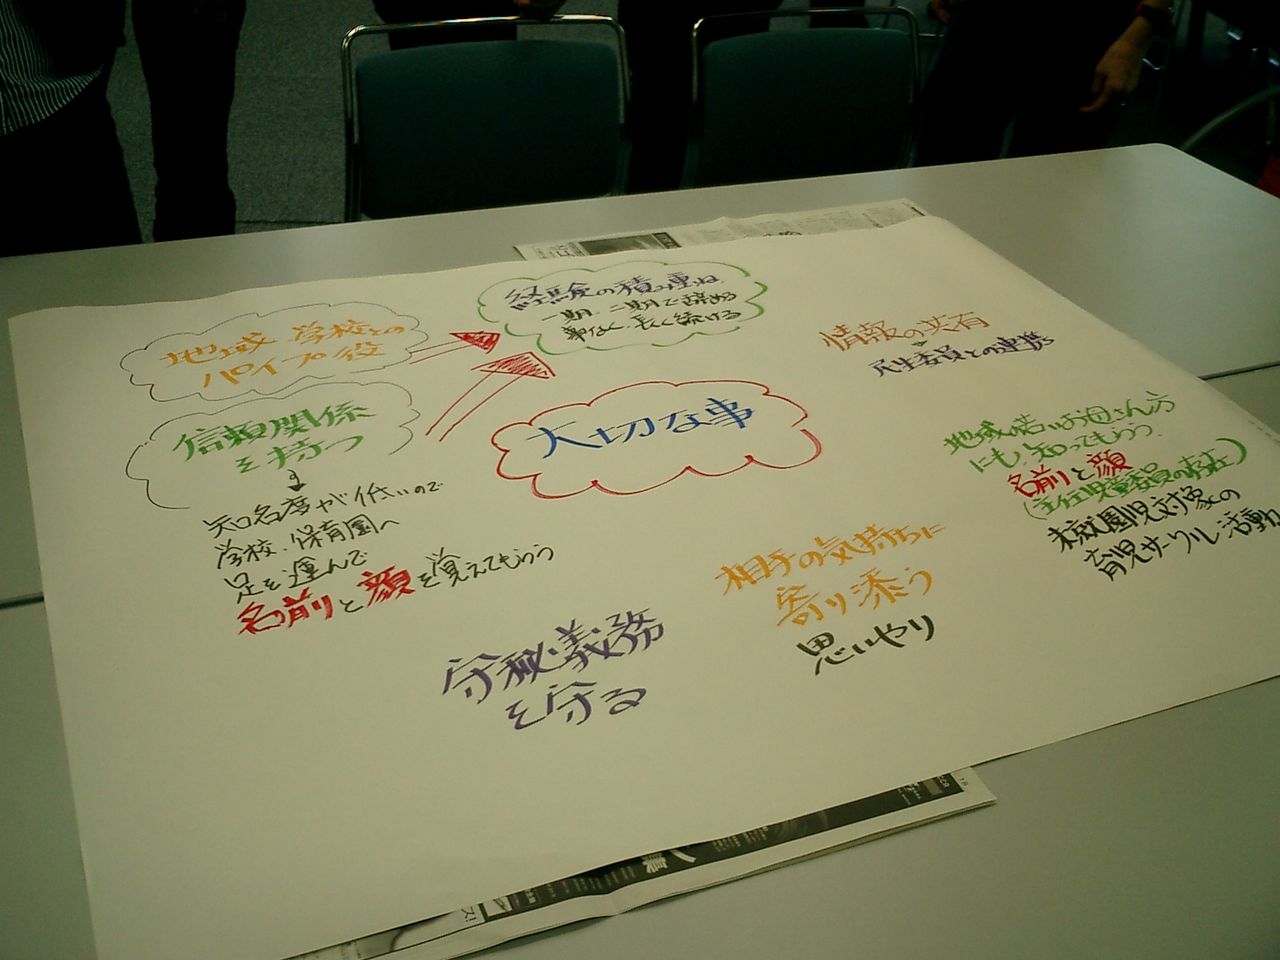 地域 学校との
パイプ役
信頼関係
を持つ
知名度が低いので
学校、保育園へ
足を運んで
名前と顔を覚えてもらう
経験の積み重ね
一期、二期で辞める
事なく、長く続ける
大切な事
情報の共有
民生委員との連携
地域の若いお母さん方
にも、知ってもらう
名前と顔
(主任児童委員の存在)
未就園児対象の
育児サークル活動
相手の気持ちに
寄り添う
思いやり
守秘義務
を守る